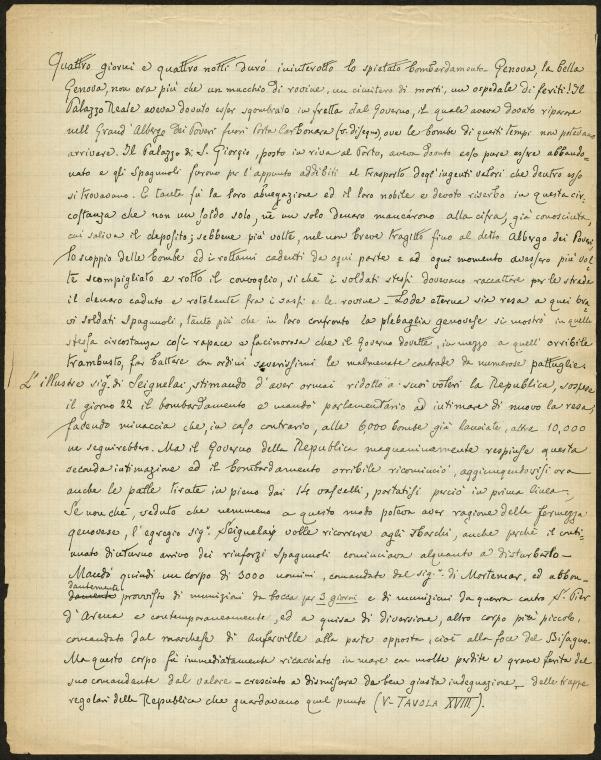 Quattro giorni e quattro notti durò ininterotto lo spietato bombardamento. Genova, la bella
Genova, non era più che un mucchio di rovine, un cimitero di morti, un ospedale di feriti! Il
Palazzo Reale aveva dovuto esser sgombrato in fretta dal Governo, il quale aveva dovuto riparare
nell Grand' Albergo Dei Poveri fuori Porta Carbonara (v. disegno), ove le bombe di questi tempi non potevano
arrivare. Il Palazzo di S. Giorgio, posto in riva al Porto, aveva dovuto esso pure essere abbando-
nato e gli Spagnuoli furono per l'appunto addibiti al trasporto degl'ingenti valori che dentro esso
si trovavano. E tanta fù la loro abnegazione ed il loro nobile e devoto riserbo in questa cir-
costanza che non un soldo solo, nè un solo denaro mancarono alla cifra, già conosciuta,
cui saliva il deposito; sebbene più volte, nel non breve tragitto fino al detto Albergo dei Poveri
lo scoppio delle bombe ed i rottami cadenti da ogni parte e ad ogni momento avessero più vol-
te scompigliato e rotto il convoglio, sì chè i soldati stessi dovevano raccattare per le strade
il denaro caduto e rotolante fra i sassi e le rovine. Lode eterna sia resa a quei bra-
vi soldati Spagnuoli, tanto più che in loro confronto la plebaglia genovese si mostrò in quella
stessa circostanza così rapace e facinorosa che il Governo dovette, in mezzo a quell' orribile
trambusto, far battere con ordini severissimi le malmenate contrade da numerose pattuglie.
L'illustre sigr. di Seignelai, stimando d'aver ormai ridotto a' suoi voleri la Repubblica, sospese
il giorno 22 il bombardamento e mandò parlamentario ad intimare di nuovo la resa,
facendo minaccia che, in caso contrario, alle 6000 bombe già lanciate, altre 10,000
ne seguirebbero. Ma il Governo della Repubblica magnanimamente respinse questa
seconda intimazione ed il bombardamento orribile ricominciò, aggiungendovisi ora
anche le palle tirate in pieno dai 14 vascelli, portatisi perciò in prima linea.
Se non chè, veduto che nemmeno a questo modo poteva aver ragione della fermezza
genovese, l'egregio sigr. Seignelay volle ricorrere agli sbarchi, anche perchè il conti-
nuato diuturno arrivo dei rinforzi Spagnuoli cominciava alquanto a disturbarlo.
Mandò quindi un corpo di 3000 uomini, comandato dal sigr. di Mortemar, ed abbon-
dantemente
damente provvisto di munizioni da bocca per 3 giorni e di munizioni da guerra contro Sn. Pier
d'Arena e contemporaneamente, ed a guisa di diversione, altro corpo più piccolo,
comandato dal marchese di Anfarville alla parte opposta, cioè alla foce del Bisagno.
Ma questo corpo fù immediatamente ricacciato in mare con molte perdite e grave ferita del
suo comandante dal valore – cresciuto a dismisura da ben giusta indegnazione – delle truppe
regolari della Repubblica che guardavano quel punto (V. TAVOLA XVIII).